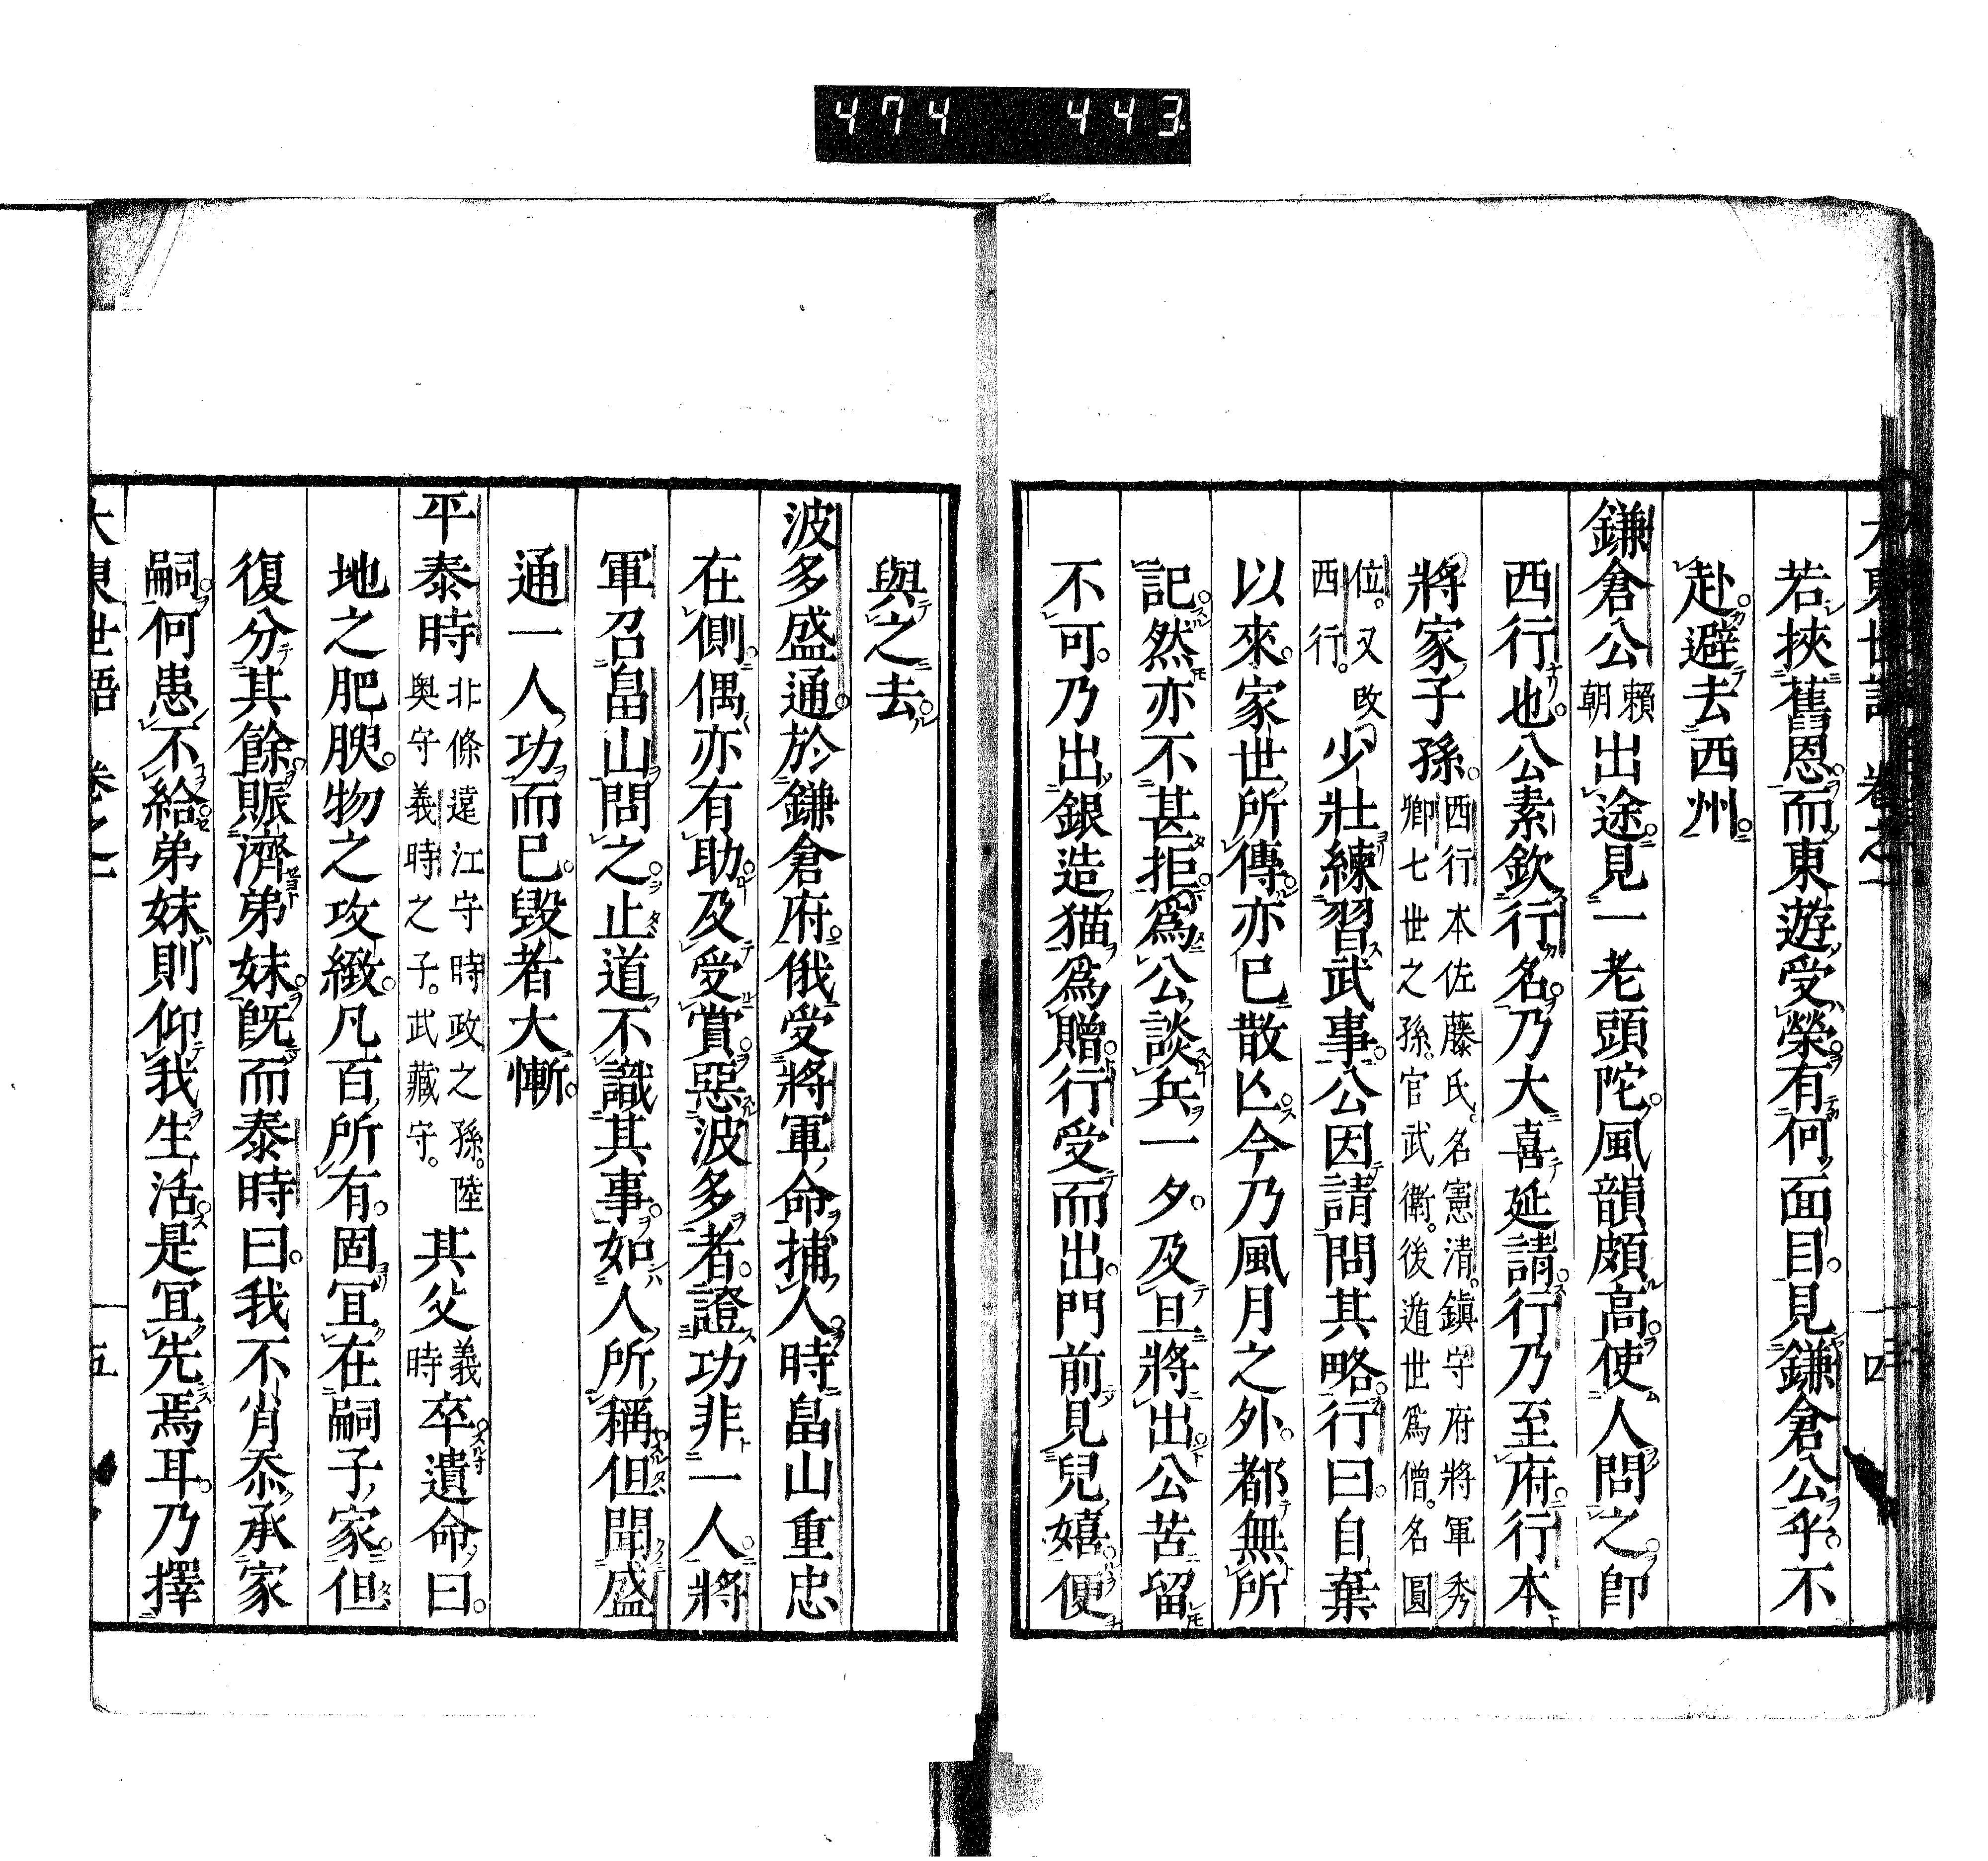 474 443
大東世語 卷之一 十四
若挾舊恩而東遊受榮有何面目見鎌倉公乎不
赴避去西州
鎌倉公賴朝出途見一老頭陀風韻頗高使人問之卽
西行也公素欽行名乃大喜延請行乃至府行本
將家子孫西行本佐藤氏名憲清鎭守府將軍秀卿七世之孫官武衛後遁世爲僧名圓
位又改西行少壯練習武事公因請問其略行曰自棄
以來家世所傳亦已散亾今乃風月之外都無所
記然亦不甚拒爲公談兵一夕及旦將出公苦留
不可乃出銀造猫爲贈行受而出門前見兒嬉便
與之去
波多盛通於鎌倉府俄受將軍命捕人時畠山重忠
在側偶亦有助及受賞惡波多者證功非一人將
軍召畠山問之止道不識其事如人所稱但聞盛
通一人功而已毀者大慚
平泰時北條遠江守時政之孫陸奥守義時之子武藏守其父義時卒遺命曰
地之肥腴物之攻緻凡百所有固冝在嗣子家但
復分其餘賑濟弟妹旣而泰時曰我不肖忝承家
嗣何患不給弟妹則仰我生活是冝先焉耳乃擇
大東世語 卷之一 十五